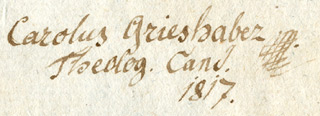 Carolus Grieshaber
Theolog. Cand.
1817.